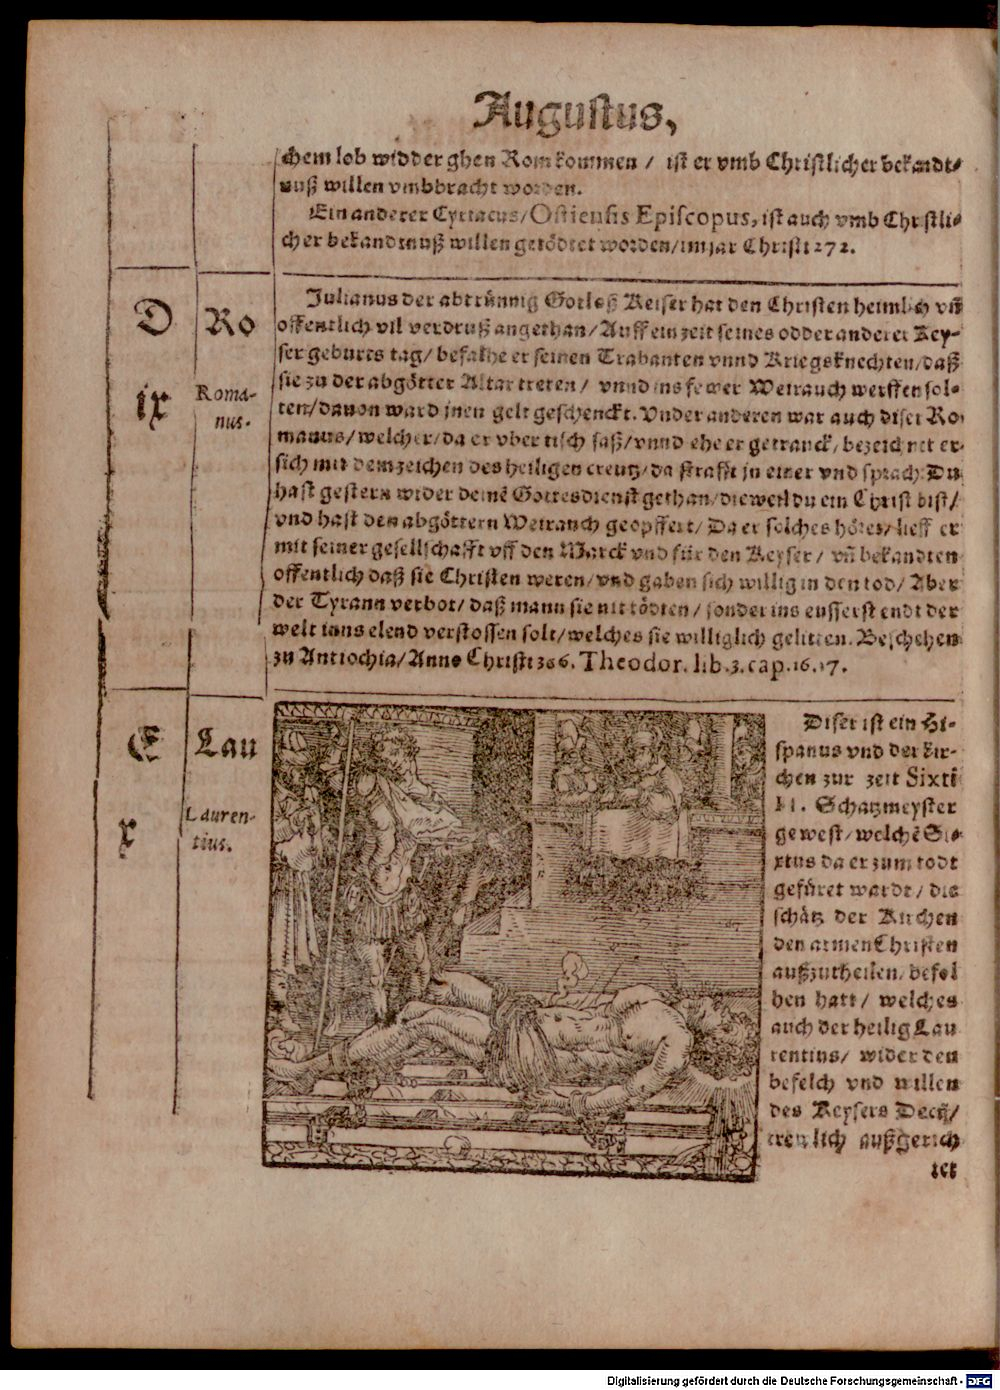 Augustus,
chem lob widder ghen Rom kommen / ist er vmb Christlicher bekandt⸗
nuß willen vmbbracht worden.
Ein anderer Cyriacus / Ostiensis Episcopus, ist auch vmb Christli⸗
cher bekandtnuß willen getödtet worden / im jar Christi 272.
D
ix
Ro
Roma-
nus.
Julianus der abtrünnig Gotloß Keiser hat den Christen heimlich vñ
offentlich vil verdruß angethan / Auff ein zeit seines odder anderer Key⸗
ser geburts tag / befalhe er seinen Trabanten vnnd Kriegsknechten / daß
sie zu der abgötter Altar treten / vnnd ins fewer Weirauch werffen sol⸗
ten / dauon ward jnen gelt geschenckt. Vnder anderen war auch diser Ro
manus / welcher / da er vber tisch saß / vnnd ehe er getranck / bezeichnet er
sich mit dem zeichen des heiligen creutz / da strafft jn einer vnd sprach: Du
hast gestern wider deinē Gottesdienst gethan / dieweil du ein Christ bist /
vnd hast den abgöttern Weirauch geopffert / Da er solches höret / lieff er
mit seiner gesellschafft vff den Marck vnd für den Keyser / vñ bekandten
offentlich daß sie Christen weren / vnd gaben sich willig in den tod / Aber
der Tyrann verbot / daß mann sie nit tödten / sonder ins eusserst endt der
welt inns elend verstossen solt / welches sie williglich gelitten. Beschehen
zu Antiochia / Anno Christi 366. Theodor. lib. 3. cap. 16. 17.
E
x
Lau
Lauren-
tius.
Diser ist ein Hi⸗
spanus vnd der kir⸗
chen zur zeit Sixti
II. Schatzmeyster
gewest / welchē Si⸗
xtus da er zum todt
gefüret wardt / die
schätz der Kirchen
den armen Christen
außzutheilen / befol
hen hatt / welches
auch der heilig Lau
rentius / wider den
befelch vnd willen
des Keysers Decij /
trewlich außgerich
tet
Digitalisierung gefördert durch die Deutsche Forschungsgemeinschaft - DFG